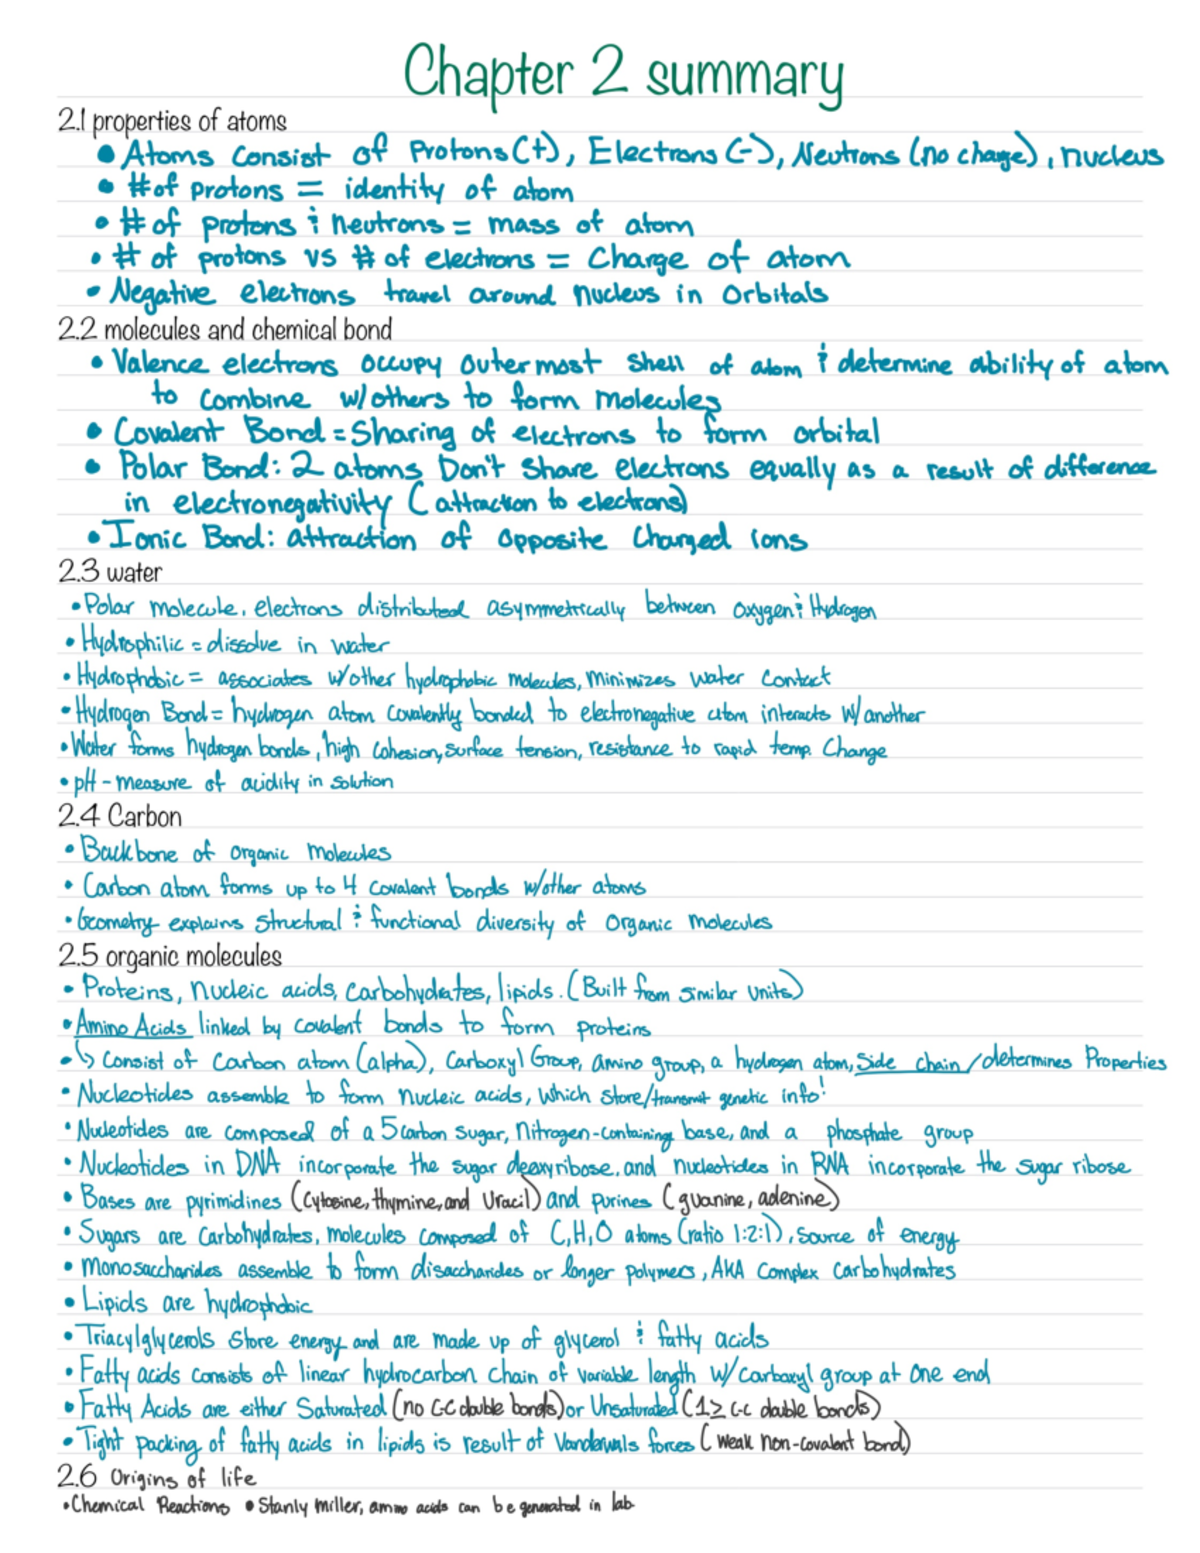 Chapter 2 summary
2.1 properties of atoms
• Atoms consist of Protons (+), Electrons (-), Neutrons (no charge), nucleus
• # of protons = identity of atom
• # of protons & neutrons = mass of atom
• # of protons vs # of electrons = Charge of atom
• Negative electrons travel around nucleus in Orbitals
2.2 molecules and chemical bond
• Valence electrons occupy outermost shell of atom & determine ability of atom
to combine w/others to form molecules
• Covalent Bond = Sharing of electrons to form orbital
• Polar Bond: 2 atoms Don't share electrons equally as a result of difference
in electronegativity (attraction to electrons)
• Ionic Bond: attraction of opposite charged ions
2.3 water
• Polar molecule, electrons distributed asymmetrically between oxygen & Hydrogen
• Hydrophilic = dissolve in water
• Hydrophobic = associates w/other hydrophobic molecules, minimizes water contact
• Hydrogen Bond = hydrogen atom covalently bonded to electronegative atom interacts w/another
• Water forms hydrogen bonds, high cohesion, surface tension, resistance to rapid temp. change
• pH - measure of acidity in solution
2.4 Carbon
• Backbone of organic molecules
• Carbon atom forms up to 4 covalent bonds w/other atoms
• Geometry explains structural & functional diversity of organic molecules
2.5 organic molecules
• Proteins, nucleic acids, carbohydrates, lipids. (Built from similar units)
• Amino Acids linked by covalent bonds to form proteins
• ↳ Consist of Carbon atom (alpha), Carboxyl Group, amino group, a hydrogen atom, Side chain/determines Properties
• Nucleotides assemble to form nucleic acids, which store/transmit genetic info!
• Nucleotides are composed of a 5 carbon sugar, nitrogen-containing base, and a phosphate group
• Nucleotides in DNA incorporate the sugar deoxyribose, and nucleotides in RNA incorporate the sugar ribose
• Bases are pyrimidines (cytosine, thymine, and Uracil) and purines (guanine, adenine)
• Sugars are carbohydrates, molecules composed of C, H, O atoms (ratio 1:2:1), source of energy
• Monosaccharides assemble to form disaccharides or longer polymers, AKA Complex carbohydrates
• Lipids are hydrophobic
• Triacylglycerols store energy and are made up of glycerol & fatty acids
• Fatty acids consists of linear hydrocarbon chain of variable length w/carboxyl group at one end
• Fatty Acids are either Saturated (no C-C double bonds) or Unsaturated (1≥ C-C double bonds)
• Tight packing of fatty acids in lipids is result of Vanderwals forces (weak non-covalent bond)
2.6 Origins of life
• Chemical Reactions • Stanly Miller, amino acids can be generated in lab